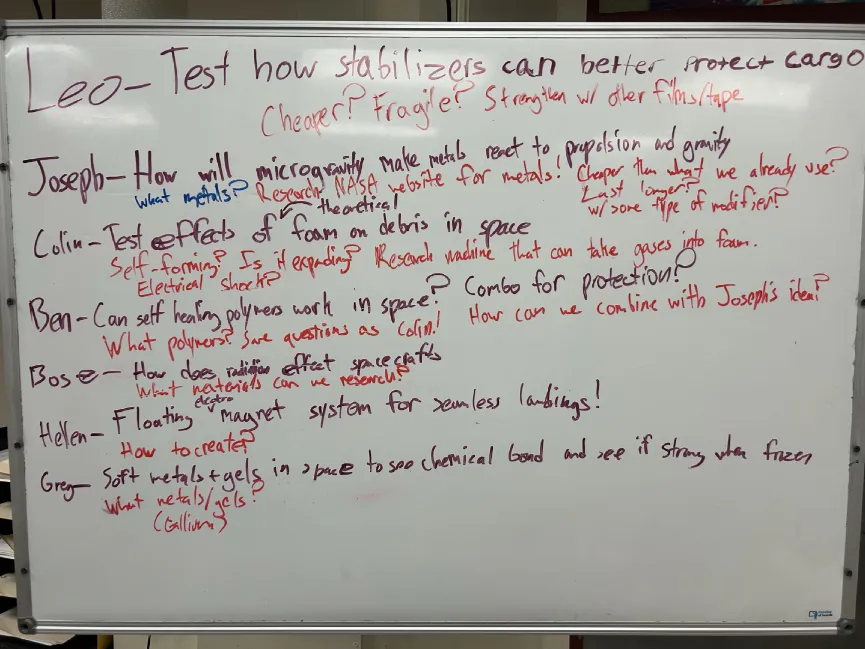 Leo- Test how stabilizers can better protect cargo
Cheaper? Fragile? Strengthen w/ other films/tape
Joseph- How will microgravity make metals react to propulsion and gravity
What metals? Research NASA website for metals! Cheaper then what we already use?
Last longer?
w/ some type of modifier?
theoretical
Colin- Test effects of foam on debris in space
Self-forming? Is it expanding? Research machine that can take gases into foam.
Electrical shock?
Ben- Can self healing polymers work in space? Combo for protection?
What polymers? Same questions as Colin! How can we combine with Joseph's idea?
Bose- How does radiation effect spacecrafts
What materials can we research?
electro
Hellen- Floating magnet system for seamless landings!
How to create?
Greg- Soft metals + gels in space to see chemical bond and see if strong when frozen
What metals/gels?
(Gallium)